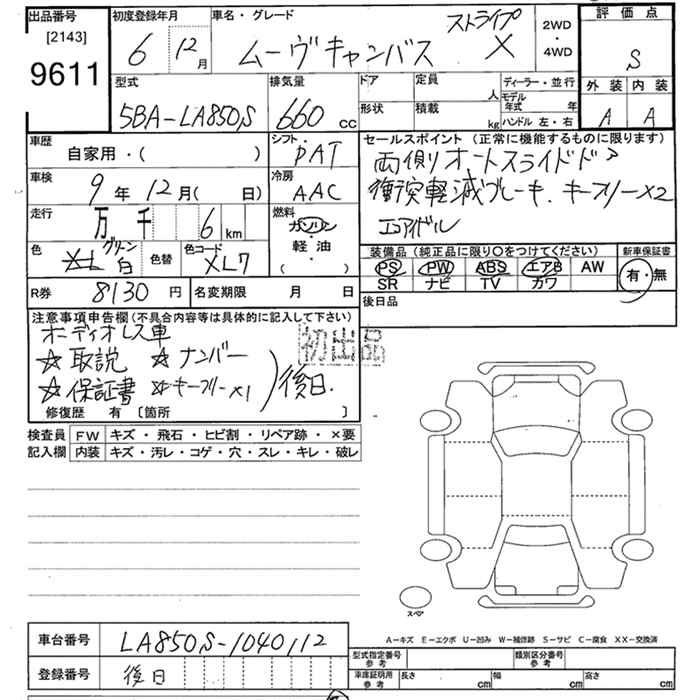 出品番号 初度登録年月 車名・グレード ストライプ 2WD・4WD 評価点
[2143]
9611 6 12月 ムーヴキャンバス X S
型式 排気量 ドア 定員 人 ディーラー・並行 外装 内装
5BA-LA850S 660cc 形状 積載 kg モデル年式 年 ハンドル 左・右 A A
車歴 自家用・( ) シフト PAT セールスポイント (正常に機能するものに限ります)
両側オートスライドドア
車検 9年12月( 日) 冷房 AAC 衝突軽減ブレーキ. キーフリー×2
走行 万 千 6 km 燃料 ガソリン・軽油・( ) エコアイドル
色 グリーン 白 色替 色コード XL7 装備品 (純正品に限り○をつけてください) 新車保証書
PS PW ABS エアB AW 有・無
SR ナビ TV カワ
R券 8130円 名変期限 月 日 後日品
注意事項申告欄(不具合内容等は具体的に記入して下さい)
オーディオレス車 初出品
☆取説 ☆ナンバー
☆保証書 ☆キーフリー×1 後日.
修復歴 有 [箇所 ]
検査員 FW キズ・飛石・ヒビ割・リペア跡・×要
記入欄 内装 キズ・汚レ・コゲ・穴・スレ・キレ・破レ
スペア
A-キズ E-エクボ U-凹み W-補修跡 S-サビ C-腐食 XX-交換済
車台番号 LA850S-1040112 型式指定番号 参考 類別区分番号 参考
登録番号 後日 車庫証明用 参考 長さ cm 幅 cm 高さ cm